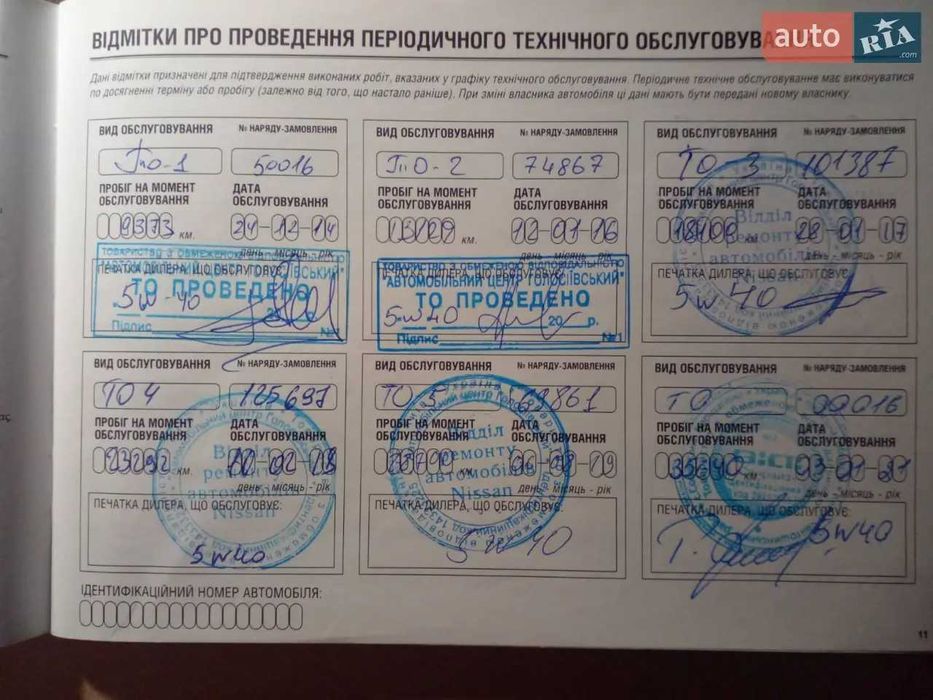 ВІДМІТКИ ПРО ПРОВЕДЕННЯ ПЕРІОДИЧНОГО ТЕХНІЧНОГО ОБСЛУГОВУВА
auto RIA .com
Дані відмітки призначені для підтвердження виконаних робіт, вказаних у графіку технічного обслуговування. Періодичне технічне обслуговування має виконуватися
по досягненні терміну або пробігу (залежно від того, що настало раніше). При зміні власника автомобіля ці дані мають бути передані новому власнику.
ВИД ОБСЛУГОВУВАННЯ № НАРЯДУ-ЗАМОВЛЕННЯ
50016
ПРОБІГ НА МОМЕНТ ОБСЛУГОВУВАННЯ
ДАТА
9373 км. 24-12-14
день - місяць - рік
ПЕЧАТКА ДИЛЕРА, ЩО ОБСЛУГОВУЄ:
ТО ПРОВЕДЕНО
5w-40
Підпис №1
ВИД ОБСЛУГОВУВАННЯ № НАРЯДУ-ЗАМОВЛЕННЯ
74867
ПРОБІГ НА МОМЕНТ ОБСЛУГОВУВАННЯ
ДАТА
км. 12-01-16
день - місяць - рік
"АВТОМОБІЛЬНИЙ ЦЕНТР ГОЛОСІЇВСЬКИЙ"
ТО ПРОВЕДЕНО
5w40 20 р.
Підпис №1
ВИД ОБСЛУГОВУВАННЯ № НАРЯДУ-ЗАМОВЛЕННЯ
ТО-3 101387
ПРОБІГ НА МОМЕНТ ОБСЛУГОВУВАННЯ
ДАТА
км. 28-01-17
день - місяць - рік
ПЕЧАТКА ДИЛЕРА, ЩО ОБСЛУГОВУЄ:
Відділ
ремонту
автомобілів
Nissan
5w40
ВИД ОБСЛУГОВУВАННЯ № НАРЯДУ-ЗАМОВЛЕННЯ
ТО 4 125691
ПРОБІГ НА МОМЕНТ ОБСЛУГОВУВАННЯ
ДАТА
23292 км.
день - місяць - рік
ПЕЧАТКА ДИЛЕРА, ЩО ОБСЛУГОВУЄ:
Відділ
ремонту
автомобілів
Nissan
5w40
ВИД ОБСЛУГОВУВАННЯ № НАРЯДУ-ЗАМОВЛЕННЯ
ТО 5
ПРОБІГ НА МОМЕНТ ОБСЛУГОВУВАННЯ
ДАТА
км.
день - місяць - рік
ПЕЧАТКА ДИЛЕРА, ЩО ОБСЛУГОВУЄ:
Відділ
ремонту
автомобілів
Nissan
5w40
ВИД ОБСЛУГОВУВАННЯ № НАРЯДУ-ЗАМОВЛЕННЯ
ТО
ПРОБІГ НА МОМЕНТ ОБСЛУГОВУВАННЯ
ДАТА
35640 км. 03-01-21
день - місяць - рік
ПЕЧАТКА ДИЛЕРА, ЩО ОБСЛУГОВУЄ:
5w40
ІДЕНТИФІКАЦІЙНИЙ НОМЕР АВТОМОБІЛЯ:
11